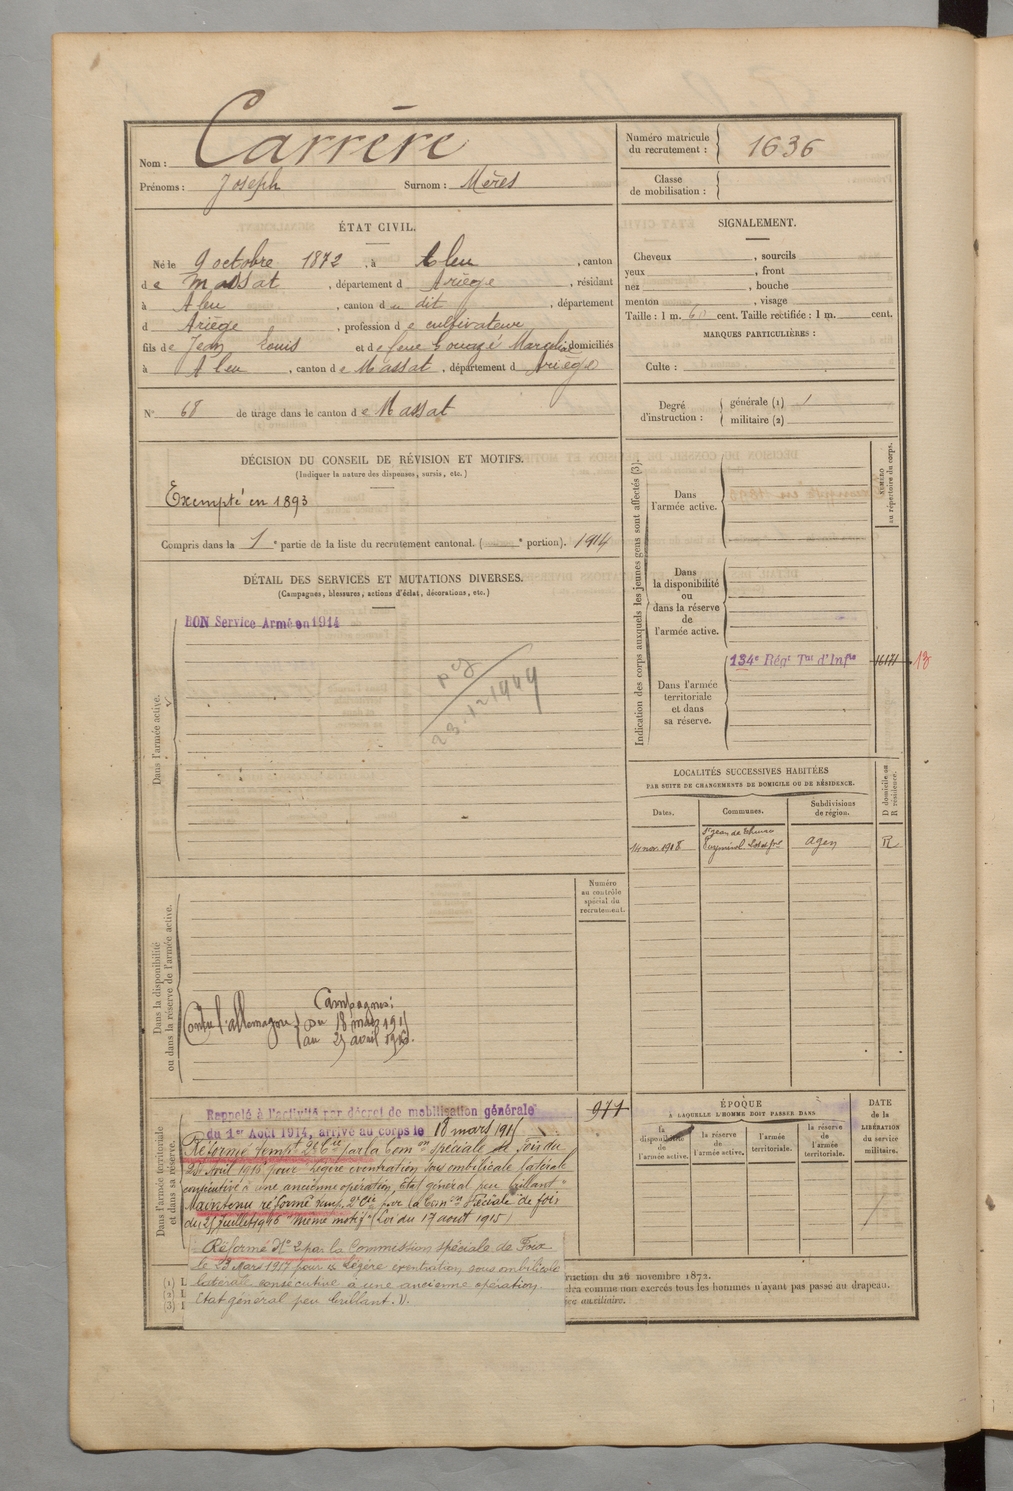 Nom : Carrère
Prénoms : Joseph Surnom : Mérés
Numéro matricule du recrutement : 1636
Classe de mobilisation :
ÉTAT CIVIL.
Né le 9 octobre 1872, à Aleu, canton
de Massat, département d Ariège, résidant
à Aleu, canton d u dit, département
d Ariège, profession de cultivateur
fils de Jean Louis et de feue Marceline domiciliés
à Aleu, canton de Massat, département d Ariège
N° 68 de tirage dans le canton de Massat
SIGNALEMENT.
Cheveux , sourcils
yeux , front
nez , bouche
menton , visage
Taille : 1 m. 60 cent. Taille rectifiée : 1 m. cent.
MARQUES PARTICULIÈRES :
Culte :
Degré d'instruction : générale (1) 1
militaire (2)
DÉCISION DU CONSEIL DE RÉVISION ET MOTIFS.
(Indiquer la nature des dispenses, sursis, etc.)
Exempté en 1893
Compris dans la 1e partie de la liste du recrutement cantonal. ( e portion). 1914
DÉTAIL DES SERVICES ET MUTATIONS DIVERSES.
(Campagnes, blessures, actions d'éclat, décorations, etc.)
Dans l'armée active.
BON Service Armé en 1914
23.12 1944
Indication des corps auxquels les jeunes gens sont affectés (3).
NUMÉRO au répertoire du corps.
Dans l'armée active.
Dans la disponibilité ou dans la réserve de l'armée active.
Dans l'armée territoriale et dans sa réserve.
134e Régt Tal d'Infie 16171 13
LOCALITÉS SUCCESSIVES HABITÉES
PAR SUITE DE CHANGEMENTS DE DOMICILE OU DE RÉSIDENCE.
D domicile ou R résidence.
Dates. Communes. Subdivisions de région.
14 nov 1918 St Jean de Thurac
Puymirol Agen R
Dans la disponibilité ou dans la réserve de l'armée active.
Numéro au contrôle spécial du recrutement.
Campagnes :
Contre l'allemagne { Du 18 mars 1915
au 29 avril 1916.
Dans l'armée territoriale et dans sa réserve.
Rappelé à l'activité par décret de mobilisation générale 971
du 1er Août 1914, arrivé au corps le 18 mars 1915
Réformé tempt 2e Cie par la Comon spéciale de Foix du
Avril 1916 pour "Légère éventration sous ombilicale latérale
consécutive à une ancienne opération, état général peu brillant"
Maintenu réformé temp. 2e Cie par la Comon spéciale de foix
du 25 juillet 1916 "Même motif" (Loi du 17 août 1915)
Réformé N° 2 par la Commission spéciale de Foix
le 23 Mars 1917 pour "Légère éventration sous ombilicale
latérale consécutive à une ancienne opération.
Etat général peu brillant. V.
ÉPOQUE
À LAQUELLE L'HOMME DOIT PASSER DANS
la disponibilité de l'armée active. la réserve de l'armée active. l'armée territoriale. la réserve de l'armée territoriale.
DATE de la LIBÉRATION du service militaire.
(1) I
(2) I
(3) I
ruction du 26 novembre 1872.
dra comme non exercés tous les hommes n'ayant pas passé au drapeau.
ice auxiliaire.